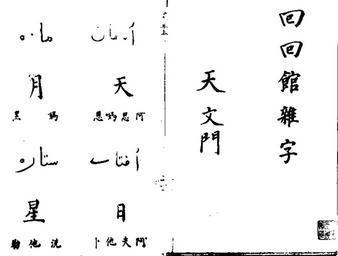 回回館雜字
天文門
آسمان
天
阿思嗎恩
آفتاب
日
阿夫他卜
ماه
月
媽黑
ستاره
星
洗他勒